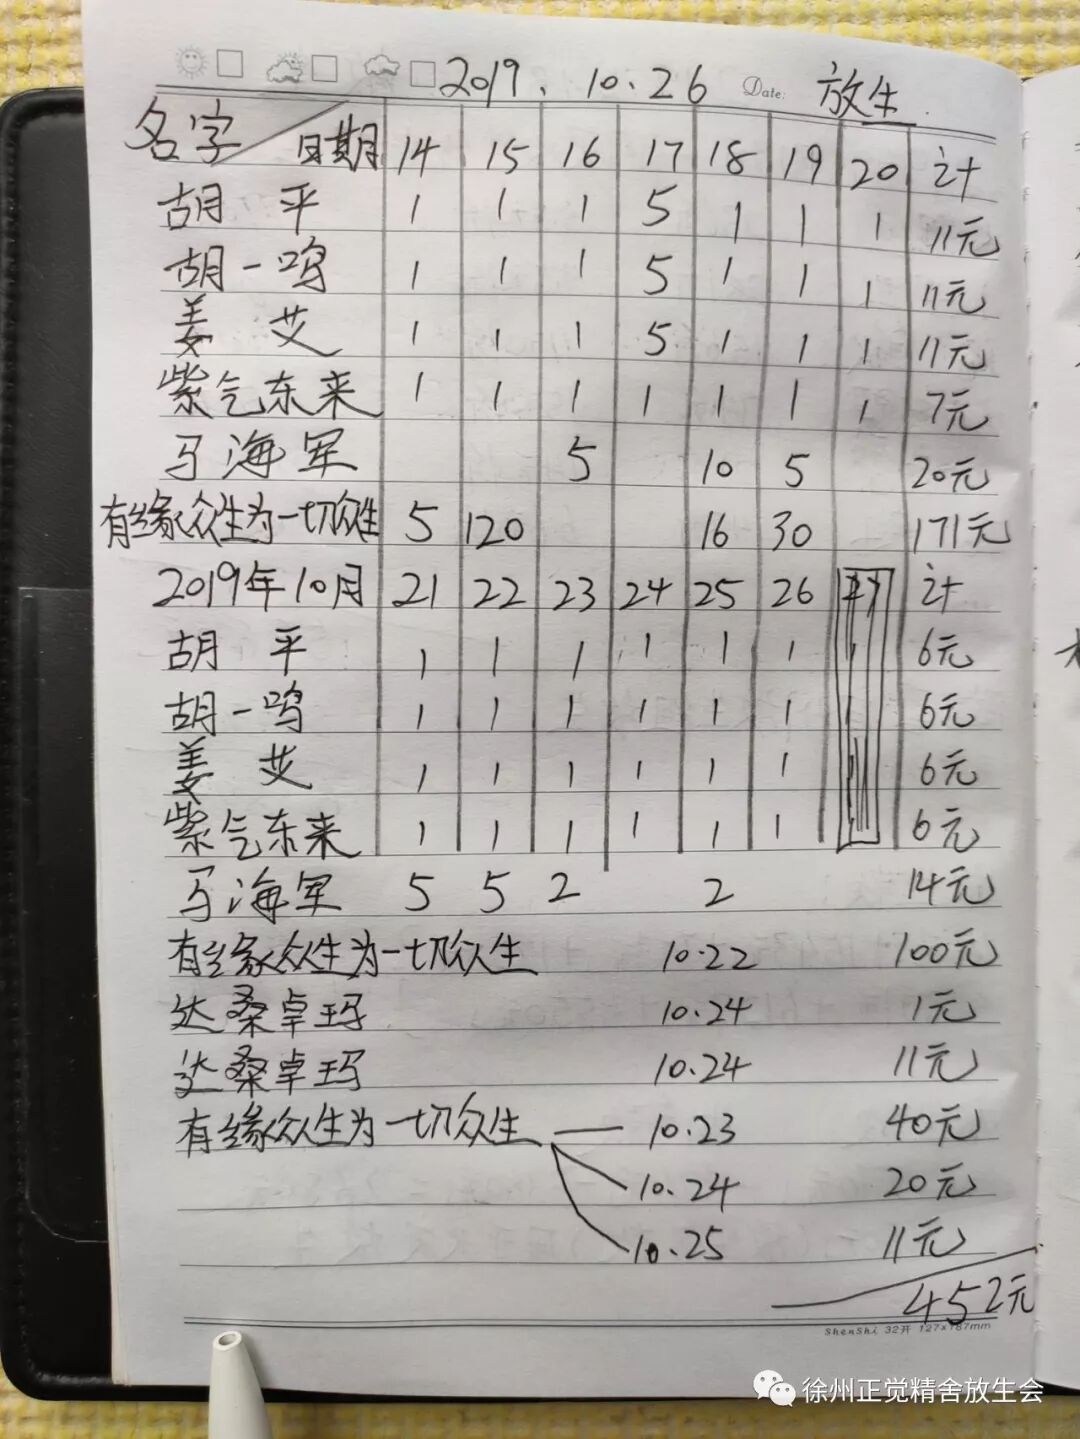 2019.10.26 Date: 放生.
名字 日期 14 15 16 17 18 19 20 计
胡平 1 1 1 5 1 1 1 11元
胡一鸣 1 1 1 5 1 1 1 11元
姜艾 1 1 1 5 1 1 1 11元
紫气东来 1 1 1 1 1 1 1 7元
马海军 5 10 5 20元
有缘众生为一切众生 5 120 16 30 171元
2019年10月 21 22 23 24 25 26 计
胡平 1 1 1 1 1 1 6元
胡一鸣 1 1 1 1 1 1 6元
姜艾 1 1 1 1 1 1 6元
紫气东来 1 1 1 1 1 1 6元
马海军 5 5 2 2 14元
有缘众生为一切众生 10.22 100元
达桑卓玛 10.24 1元
达桑卓玛 10.24 11元
有缘众生为一切众生 — 10.23 40元
10.24 20元
10.25 11元
452元
ShenShi 32开 127×187mm
徐州正觉精舍放生会